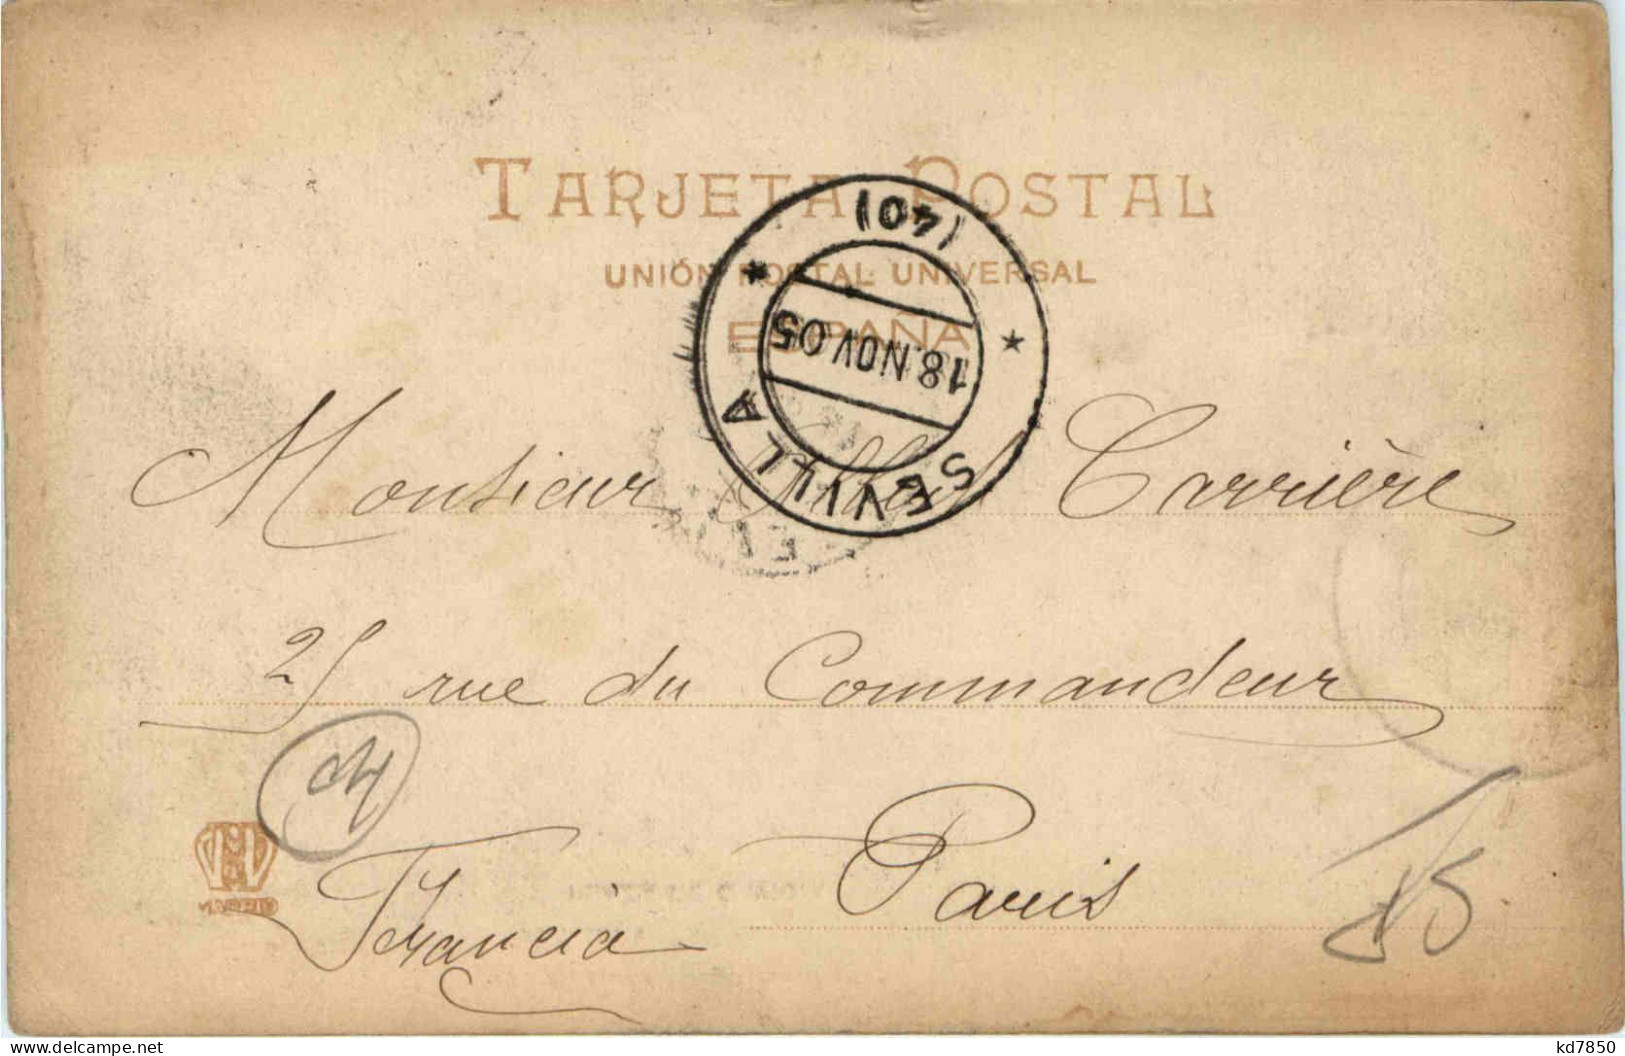 TARJETA POSTAL
UNIÓN POSTAL UNIVERSAL
ESPAÑA
SEVILLA
18.NOV.05
(40)
Monsieur Carrière
25 rue du Commandeur
Paris
Francia
MADRID
kd7850